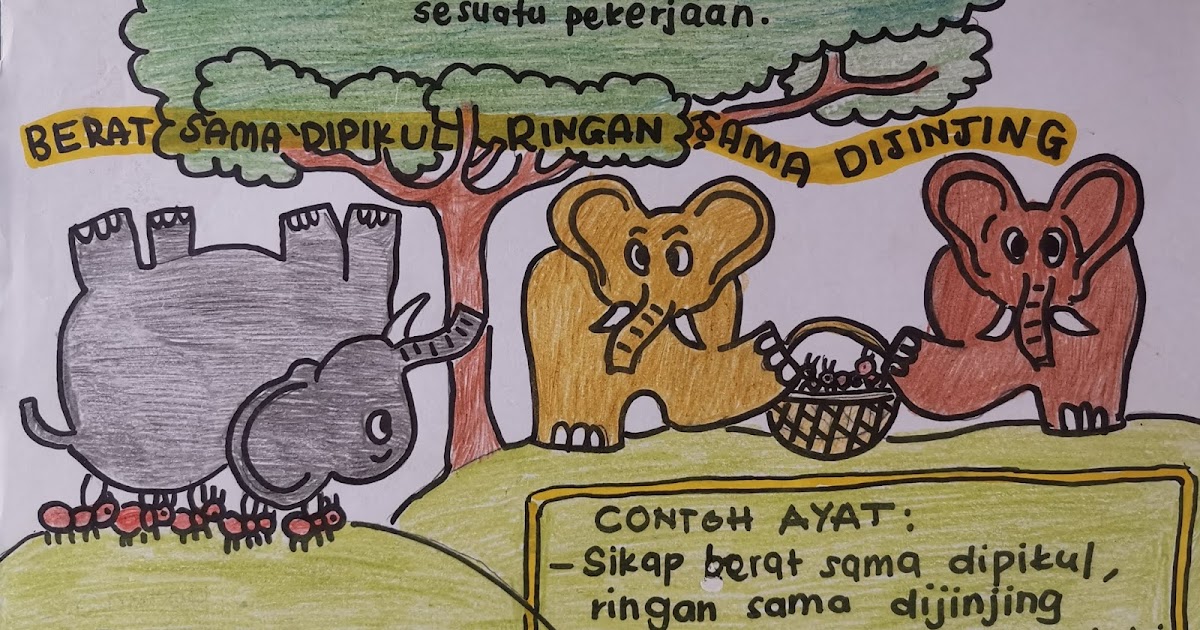 sesuatu pekerjaan.
BERAT SAMA DIPIKUL, RINGAN SAMA DIJINJING
CONTOH AYAT:
- Sikap berat sama dipikul,
ringan sama dijinjing